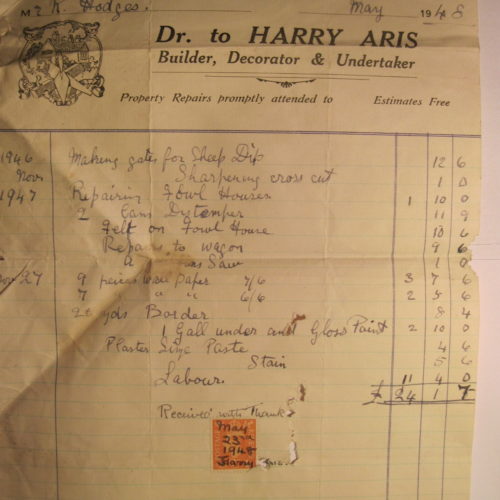 Mr R. Hodges. May 1948
Dr. to HARRY ARIS
Builder, Decorator & Undertaker
Property Repairs promptly attended to Estimates Free
1946 Making gates for Sheep Dip 12 6
Nov Sharpening cross cut 1 0
1947 Repairing Fowl Houses 1 10 0
2 Cans Distemper 11 9
Felt on Fowl House 10 6
Repairs to wagon 9 6
Saw 1 0
Nov 27 9 peices Wall Paper 7/6 3 7 6
7 " " 6/6 2 5 6
yds Border 8 4
1 Gall under and Gloss Paint 2 10 0
Plaster Size Paste 4 6
Stain 5 6
Labour. 11 4 0
£ 24 1 7
Received with Thanks
May
23rd
1948
Harry Aris.